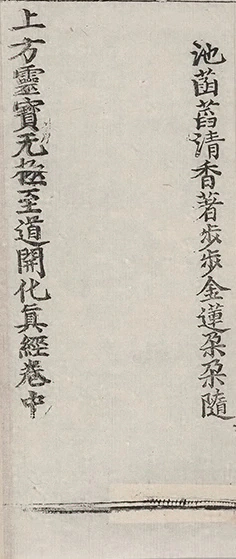 池菡萏清香著步步金蓮朶朶隨
上方靈寶无極至道開化真經卷中